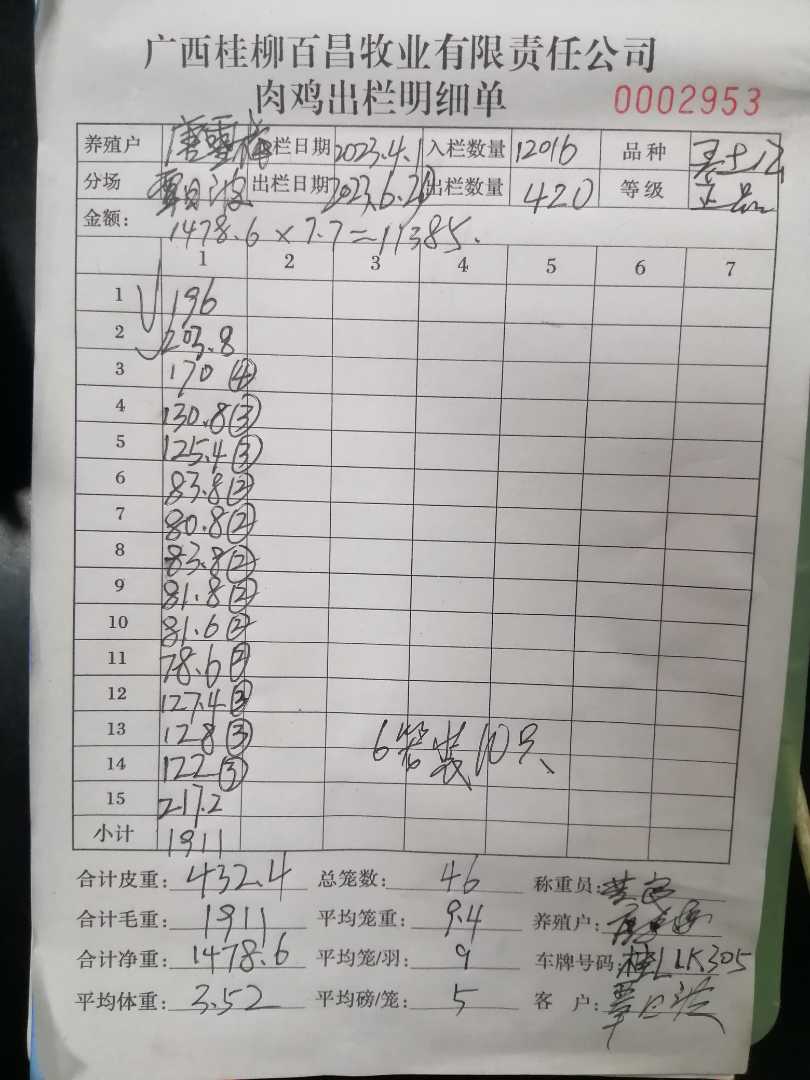 广西桂柳百昌牧业有限责任公司
肉鸡出栏明细单 0002953
养殖户 唐雪梅 栏日期 2023.4.1 入栏数量 12016 品种
分场 覃日波 出栏日期 2023.6.29 出栏数量 420 等级 正品
金额: 1478.6×7.7=11385.
1 2 3 4 5 6 7
1 196
2 203.8
3 170 ④
4 130.8 ③
5 125.4 ③
6 83.8 ②
7 80.8 ②
8 83.8 ②
9 81.8 ②
10 81.6 ②
11 78.6 ②
12 127.4 ③
13 128 ③ 6笼装10只
14 122 ③
15 217.2
小计 1911
合计皮重: 432.4 总笼数: 46 称重员:
合计毛重: 1911 平均笼重: 9.4 养殖户:
合计净重: 1478.6 平均笼/羽: 9 车牌号码: 桂LLK305
平均体重: 3.52 平均磅/笼: 5 客户: 覃日波